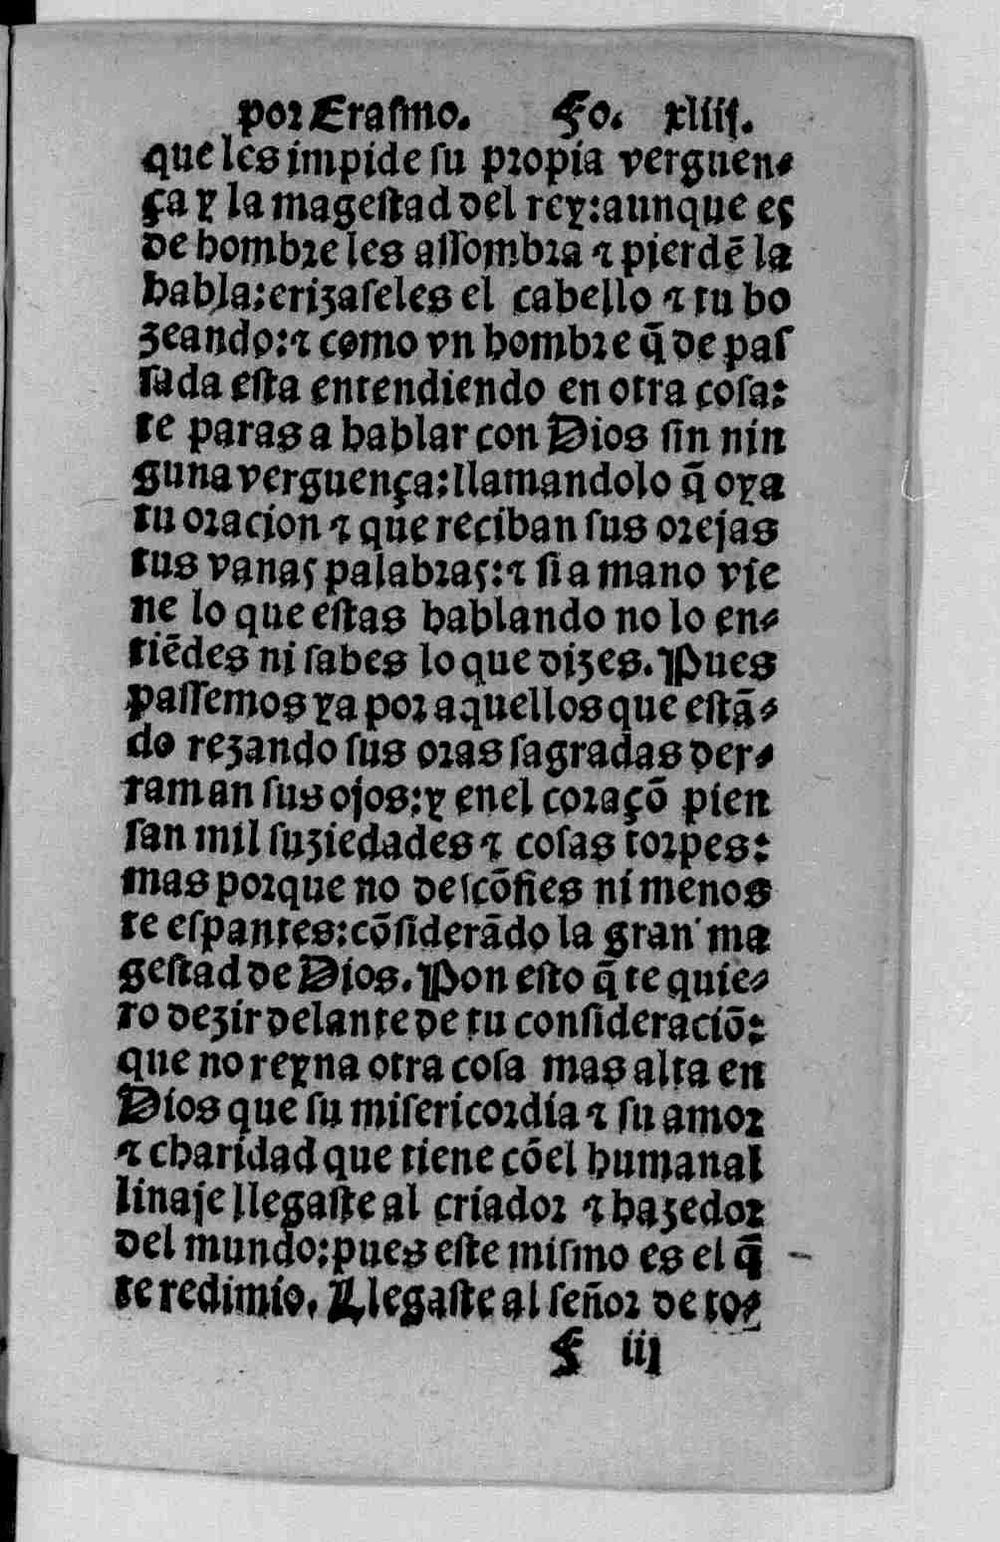 por Erasmo. Fo. xliij.
que les impide su propia verguen-
ça y la magestad del rey: aunque es
de hombre les assombra ⁊ pierdẽ la
habla: erizaseles el cabello ⁊ tu bo
zeando: ⁊ como vn hombre q̃ de pas
sada esta entendiendo en otra cosa:
te paras a hablar con Dios sin nin
guna verguença: llamandolo q̃ oya
tu oracion ⁊ que reciban sus orejas
tus vanas palabras: ⁊ si a mano vie
ne lo que estas hablando no lo en-
tiẽdes ni sabes lo que dizes. Pues
passemos ya por aquellos que estã-
do rezando sus oras sagradas der-
raman sus ojos: y enel coraçõ pien
san mil suziedades ⁊ cosas torpes:
mas porque no descõfies ni menos
te espantes: cõsiderãdo la gran ma
gestad de Dios. Pon esto q̃ te quie-
ro dezir delante de tu consideraciõ:
que no reyna otra cosa mas alta en
Dios que su misericordia ⁊ su amor
⁊ charidad que tiene cõel humanal
linaje llegaste al criador ⁊ hazedor
del mundo: pues este mismo es el q̃
te redimio. Llegaste al señor de to-
f iij